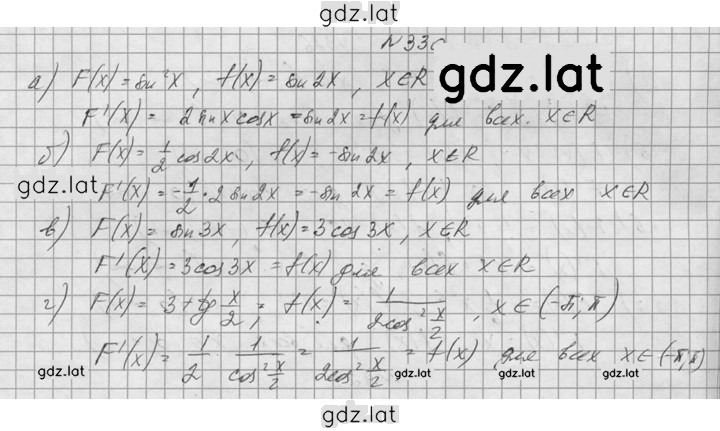 gdz.lat
N 33
gdz.lat
а) F(x) = sin²x, f(x) = sin2x, x∈R
F'(x) = 2sinxcosx = sin2x = f(x) для всех x∈R
б) F(x) = 1/2 cos2x, f(x) = -sin2x, x∈R
gdz.lat
F'(x) = -1/2 · 2sin2x = -sin2x = f(x) для всех x∈R
в) F(x) = sin3x, f(x) = 3cos3x, x∈R
F'(x) = 3cos3x = f(x) для всех x∈R
г) F(x) = 3 + tg x/2; f(x) = 1/(2cos² x/2), x∈(-π; π)
F'(x) = 1/2 · 1/(cos² x/2) = 1/(2cos² x/2) = f(x) для всех x∈(-π; π)
gdz.lat gdz.lat gdz.lat gdz.lat gdz.lat
gdz.lat